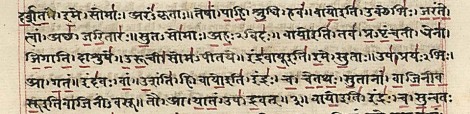 दर्शत।इमे।सोमाः।अरंऽकृताः।तेषां।पाहि।श्रुधि।हवं॥वायोइति।उक्थेभिः।जरंते
त्वां।अच्छ।जरितारः।सुतऽसोमाः।अहःऽविदः॥वायोइति।तव।प्रऽपृंचती।धेना
जिगाति।दाशुषे।उरूची।सोमऽपीतये॥इंद्रवायूइति।इमे।सुताः।उप।प्रयःऽभिः।
आ।गतं।इंदवः।वां।उशंति।हि॥वायोइति।इंद्रः।च।चेतथः।सुतानां।वाजिनीव
सूइतिवाजिनीऽवसू।तौ।आ।यातं।उप।द्रवत्॥३॥वायोइति।इंद्रः।च।सुन्वतः